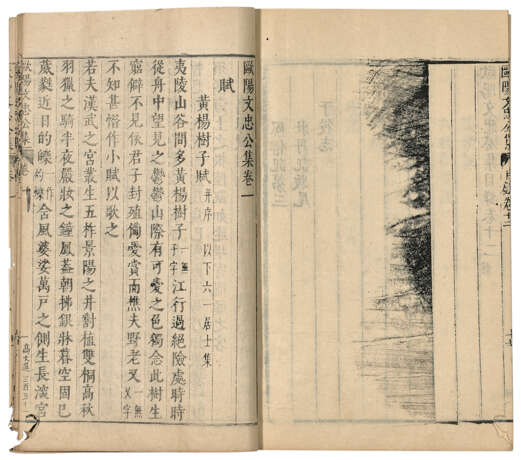 歐陽文忠公集
歐陽文忠公集卷一
賦
黃楊樹子賦 并序 以下六一居士集
夷陵山谷間多黃楊樹子一無子字江行過絕險處時時
從舟中望見之鬱鬱山際有可愛之色獨念此樹生
窮僻不見依君子封殖備愛賞而樵夫野老又一無又字
不知甚惜作小賦以歌之
若夫漢武之宮叢生五柞景陽之井對植雙桐高秋
羽獵之騎半夜嚴妝之鐘鳳蓋朝拂銀牀暮空固已
葳蕤近日的皪一作灼爍含風婆娑萬戶之側生長深宮
歐陽文忠公集